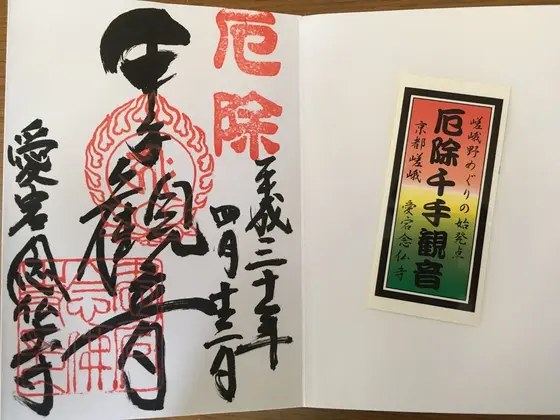 厄除
平成三十年
四月
千手観音
愛宕念仏寺
嵯峨野めぐりの始発点
厄除千手観音
京都嵯峨 愛宕念仏寺